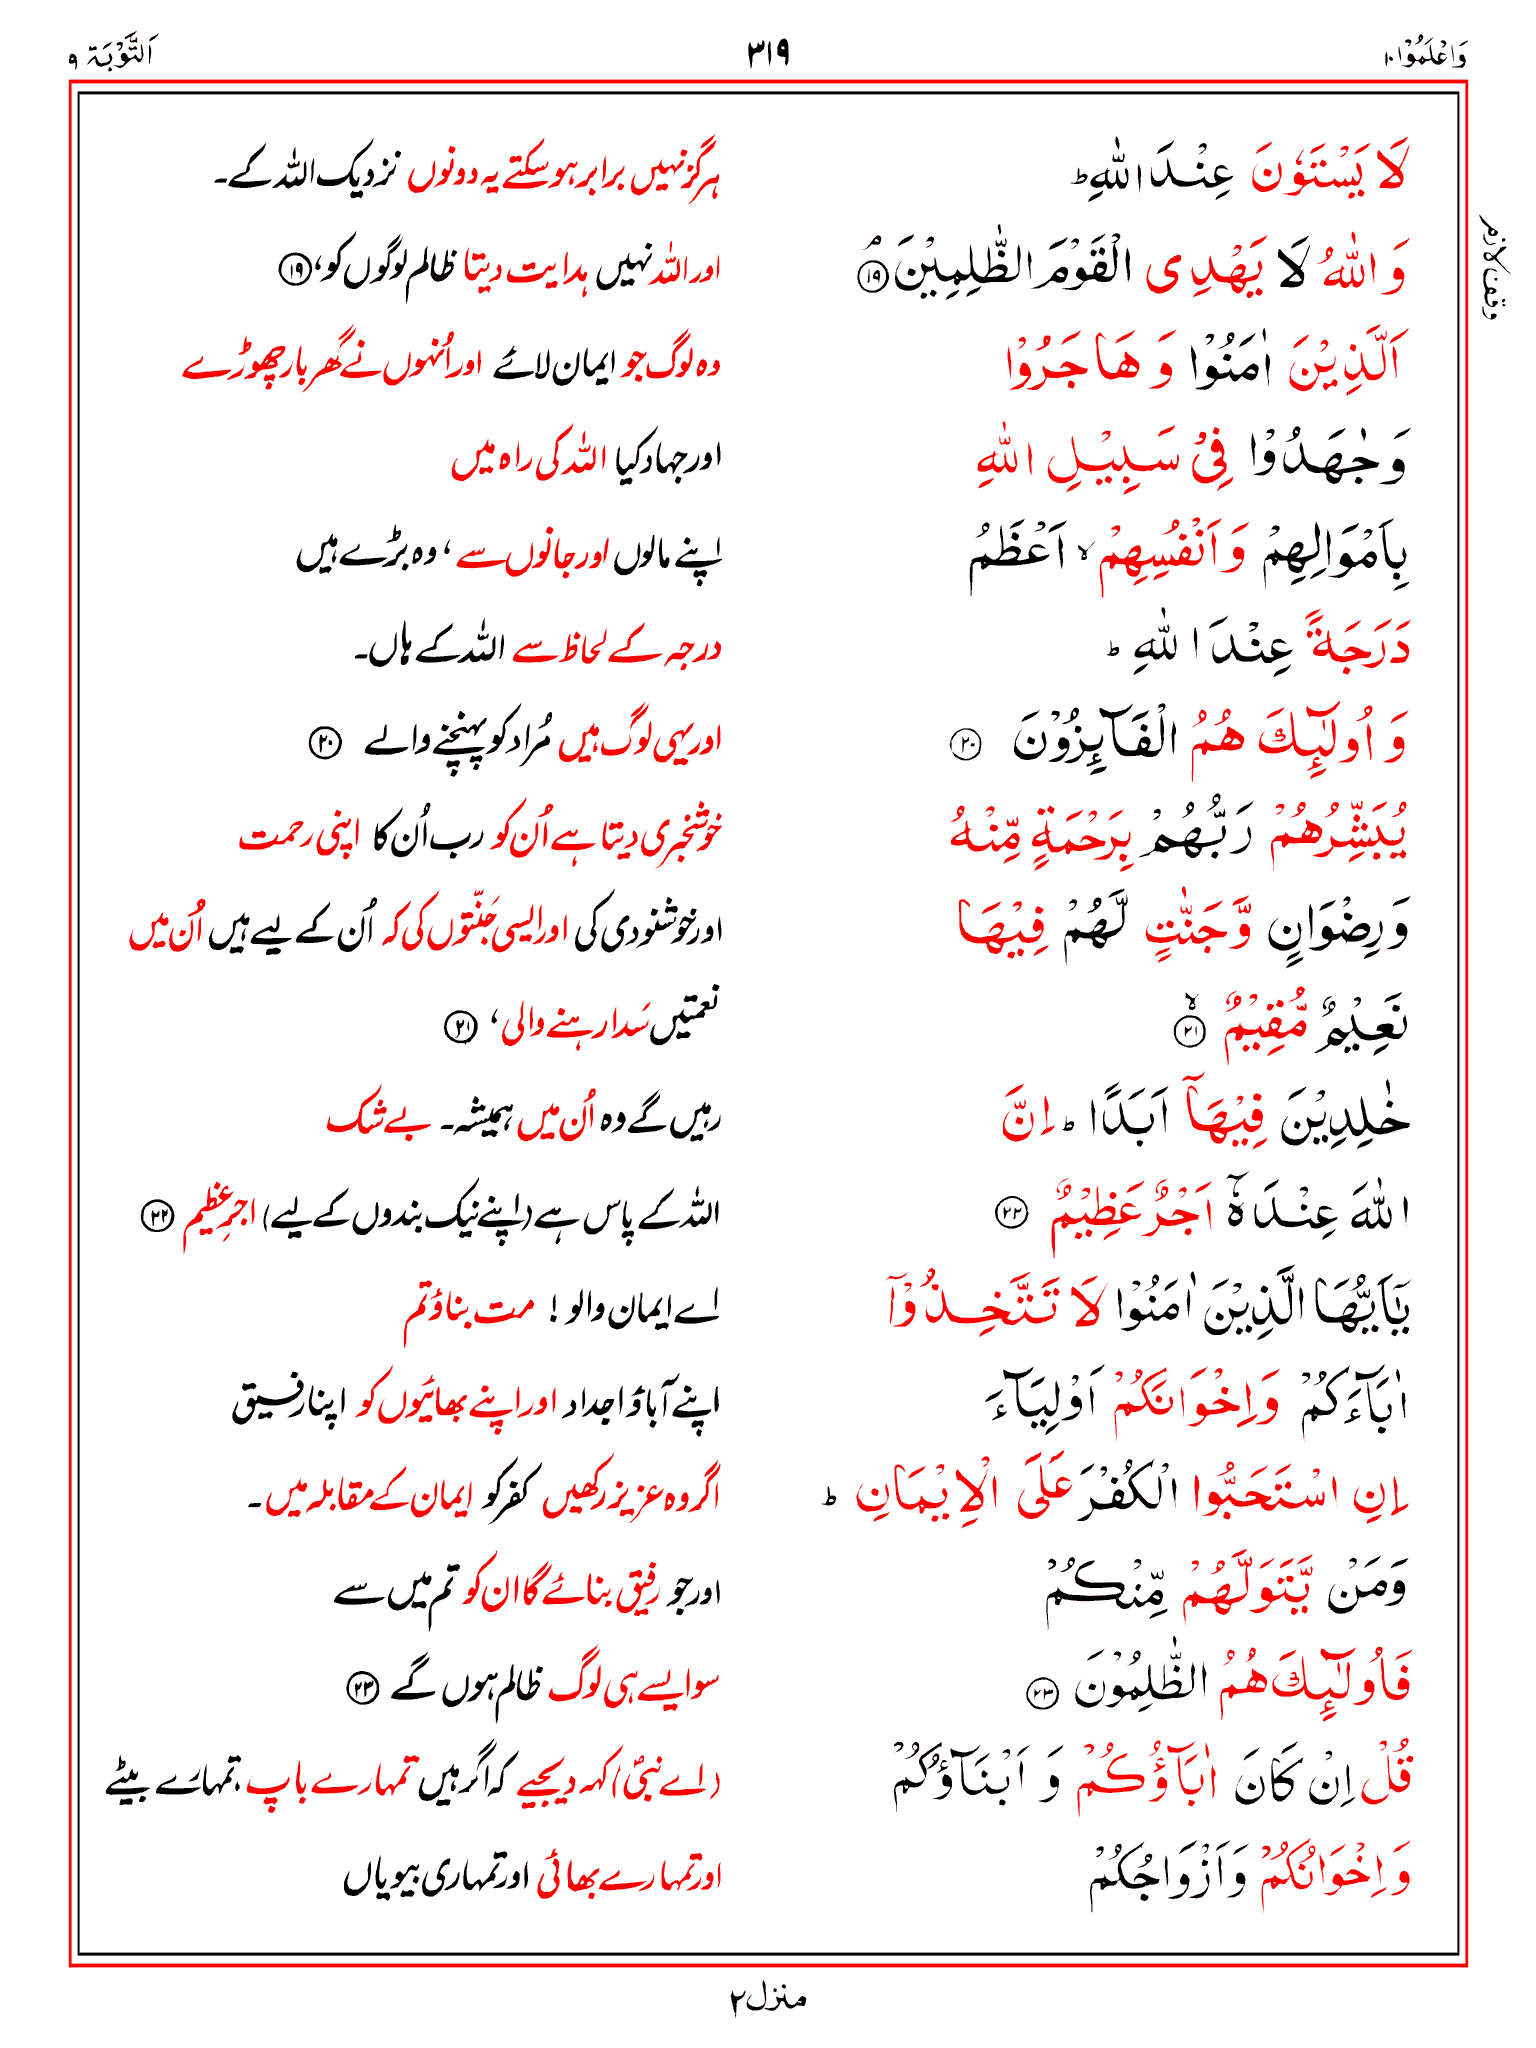 وَاعْلَمُوْا ۱۰ ۳۱۹ اَلتَّوْبَة ۹
وقف لازم
لَا يَسْتَوٗنَ عِنْدَ اللّٰهِ ؕ ہرگز نہیں برابر ہوسکتے یہ دونوں نزدیک اللہ کے۔
وَ اللّٰهُ لَا يَهْدِى الْقَوْمَ الظّٰلِمِيْنَ ۘ ﴿۱۹﴾ اور اللہ نہیں ہدایت دیتا ظالم لوگوں کو، ﴿۱۹﴾
اَلَّذِيْنَ اٰمَنُوْا وَ هَاجَرُوْا وہ لوگ جو ایمان لائے اور اُنہوں نے گھر بار چھوڑے
وَ جٰهَدُوْا فِىْ سَبِيْلِ اللّٰهِ اور جہاد کیا اللہ کی راہ میں
بِاَمْوَالِهِمْ وَ اَنْفُسِهِمْ ۙ اَعْظَمُ اپنے مالوں اور جانوں سے ، وہ بڑے ہیں
دَرَجَةً عِنْدَ اللّٰهِ ؕ درجہ کے لحاظ سے اللہ کے ہاں۔
وَ اُولٰٓئِكَ هُمُ الْفَآئِزُوْنَ ﴿۲۰﴾ اور یہی لوگ ہیں مُراد کو پہنچنے والے ﴿۲۰﴾
يُبَشِّرُهُمْ رَبُّهُمْ بِرَحْمَةٍ مِّنْهُ خوشخبری دیتا ہے اُن کو رب اُن کا اپنی رحمت
وَ رِضْوَانٍ وَّ جَنّٰتٍ لَّهُمْ فِيْهَا اور خوشنودی کی اور ایسی جَنّتوں کی کہ اُن کے لیے ہیں اُن میں
نَعِيْمٌ مُّقِيْمٌ ۙ ﴿۲۱﴾ نعمتیں سَدا رہنے والی، ﴿۲۱﴾
خٰلِدِيْنَ فِيْهَاۤ اَبَدًا ؕ اِنَّ رہیں گے وہ اُن میں ہمیشہ۔ بے شک
اللّٰهَ عِنْدَهٗۤ اَجْرٌ عَظِيْمٌ ﴿۲۲﴾ اللہ کے پاس ہے (اپنے نیک بندوں کے لیے) اجرِ عظیم ﴿۲۲﴾
يٰۤاَيُّهَا الَّذِيْنَ اٰمَنُوْا لَا تَتَّخِذُوْۤا اے ایمان والو ! مت بناؤ تم
اٰبَآءَكُمْ وَ اِخْوَانَكُمْ اَوْلِيَآءَ اپنے آباؤ اجداد اور اپنے بھائیوں کو اپنا رفیق
اِنِ اسْتَحَبُّوا الْكُفْرَ عَلَى الْاِيْمَانِ ؕ اگر وہ عزیز رکھیں کفر کو ایمان کے مقابلہ میں ۔
وَ مَنْ يَّتَوَلَّهُمْ مِّنْكُمْ اور جو رفیق بنائے گا ان کو تم میں سے
فَاُولٰٓئِكَ هُمُ الظّٰلِمُوْنَ ﴿۲۳﴾ سو ایسے ہی لوگ ظالم ہوں گے ﴿۲۳﴾
قُلْ اِنْ كَانَ اٰبَآؤُكُمْ وَ اَبْنَآؤُكُمْ (اے نبیؐ) کہہ دیجیے کہ اگر ہیں تمہارے باپ ، تمہارے بیٹے
وَ اِخْوَانُكُمْ وَ اَزْوَاجُكُمْ اور تمہارے بھائی اور تمہاری بیویاں
منزل ۲